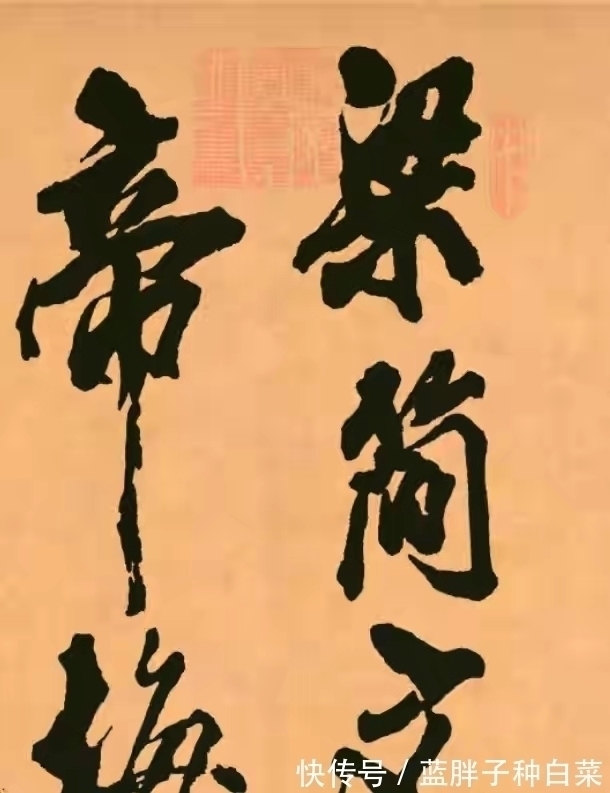 梁简文
帝梅
快传号 / 蓝胖子种白菜